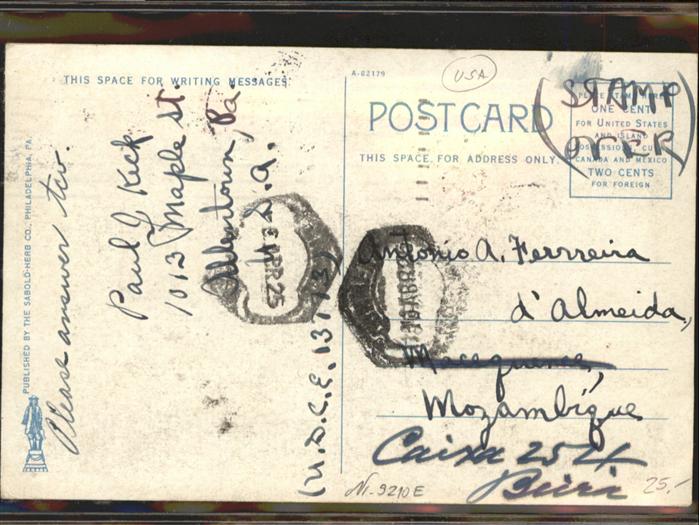 THIS SPACE FOR WRITING MESSAGES.
A-82179
USA
POSTCARD
THIS SPACE FOR ADDRESS ONLY.
PLACE STAMP HERE
ONE CENT
FOR UNITED STATES
AND ISLAND
POSSESSIONS, CU
CANADA AND MEXICO
TWO CENTS
FOR FOREIGN
(STAMP
OVER)
PUBLISHED BY THE SABOLD-HERB CO., PHILADELPHIA, PA.
Please answer two.
Paul J Kick
1013 Maple St.
Allentown, Pa
U.S.A.
(U.D.C.E. 13773)
Antonio A. Ferrreira
d'Almeida,
Macequence,
Mozambique
Caixa 254
Beira
Nr. 9210 E
25.-